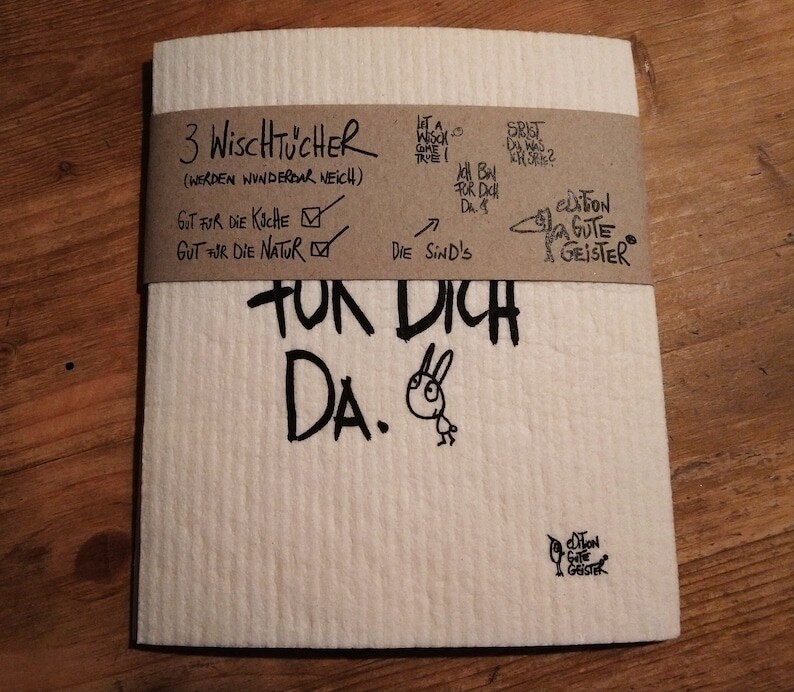 3 WISCHTÜCHER
(WERDEN WUNDERBAR WEICH)
GUT FÜR DIE KÜCHE
GUT FÜR DIE NATUR
LET A
WISCH
COME
TRUE!
SPÜLST
DU, WAS
ICH SPÜL?
ICH BIN
FÜR DICH
DA.
DIE SIND'S
EDITION
GUTE
GEISTER®
FÜR DICH
DA.
EDITION
GUTE
GEISTER®